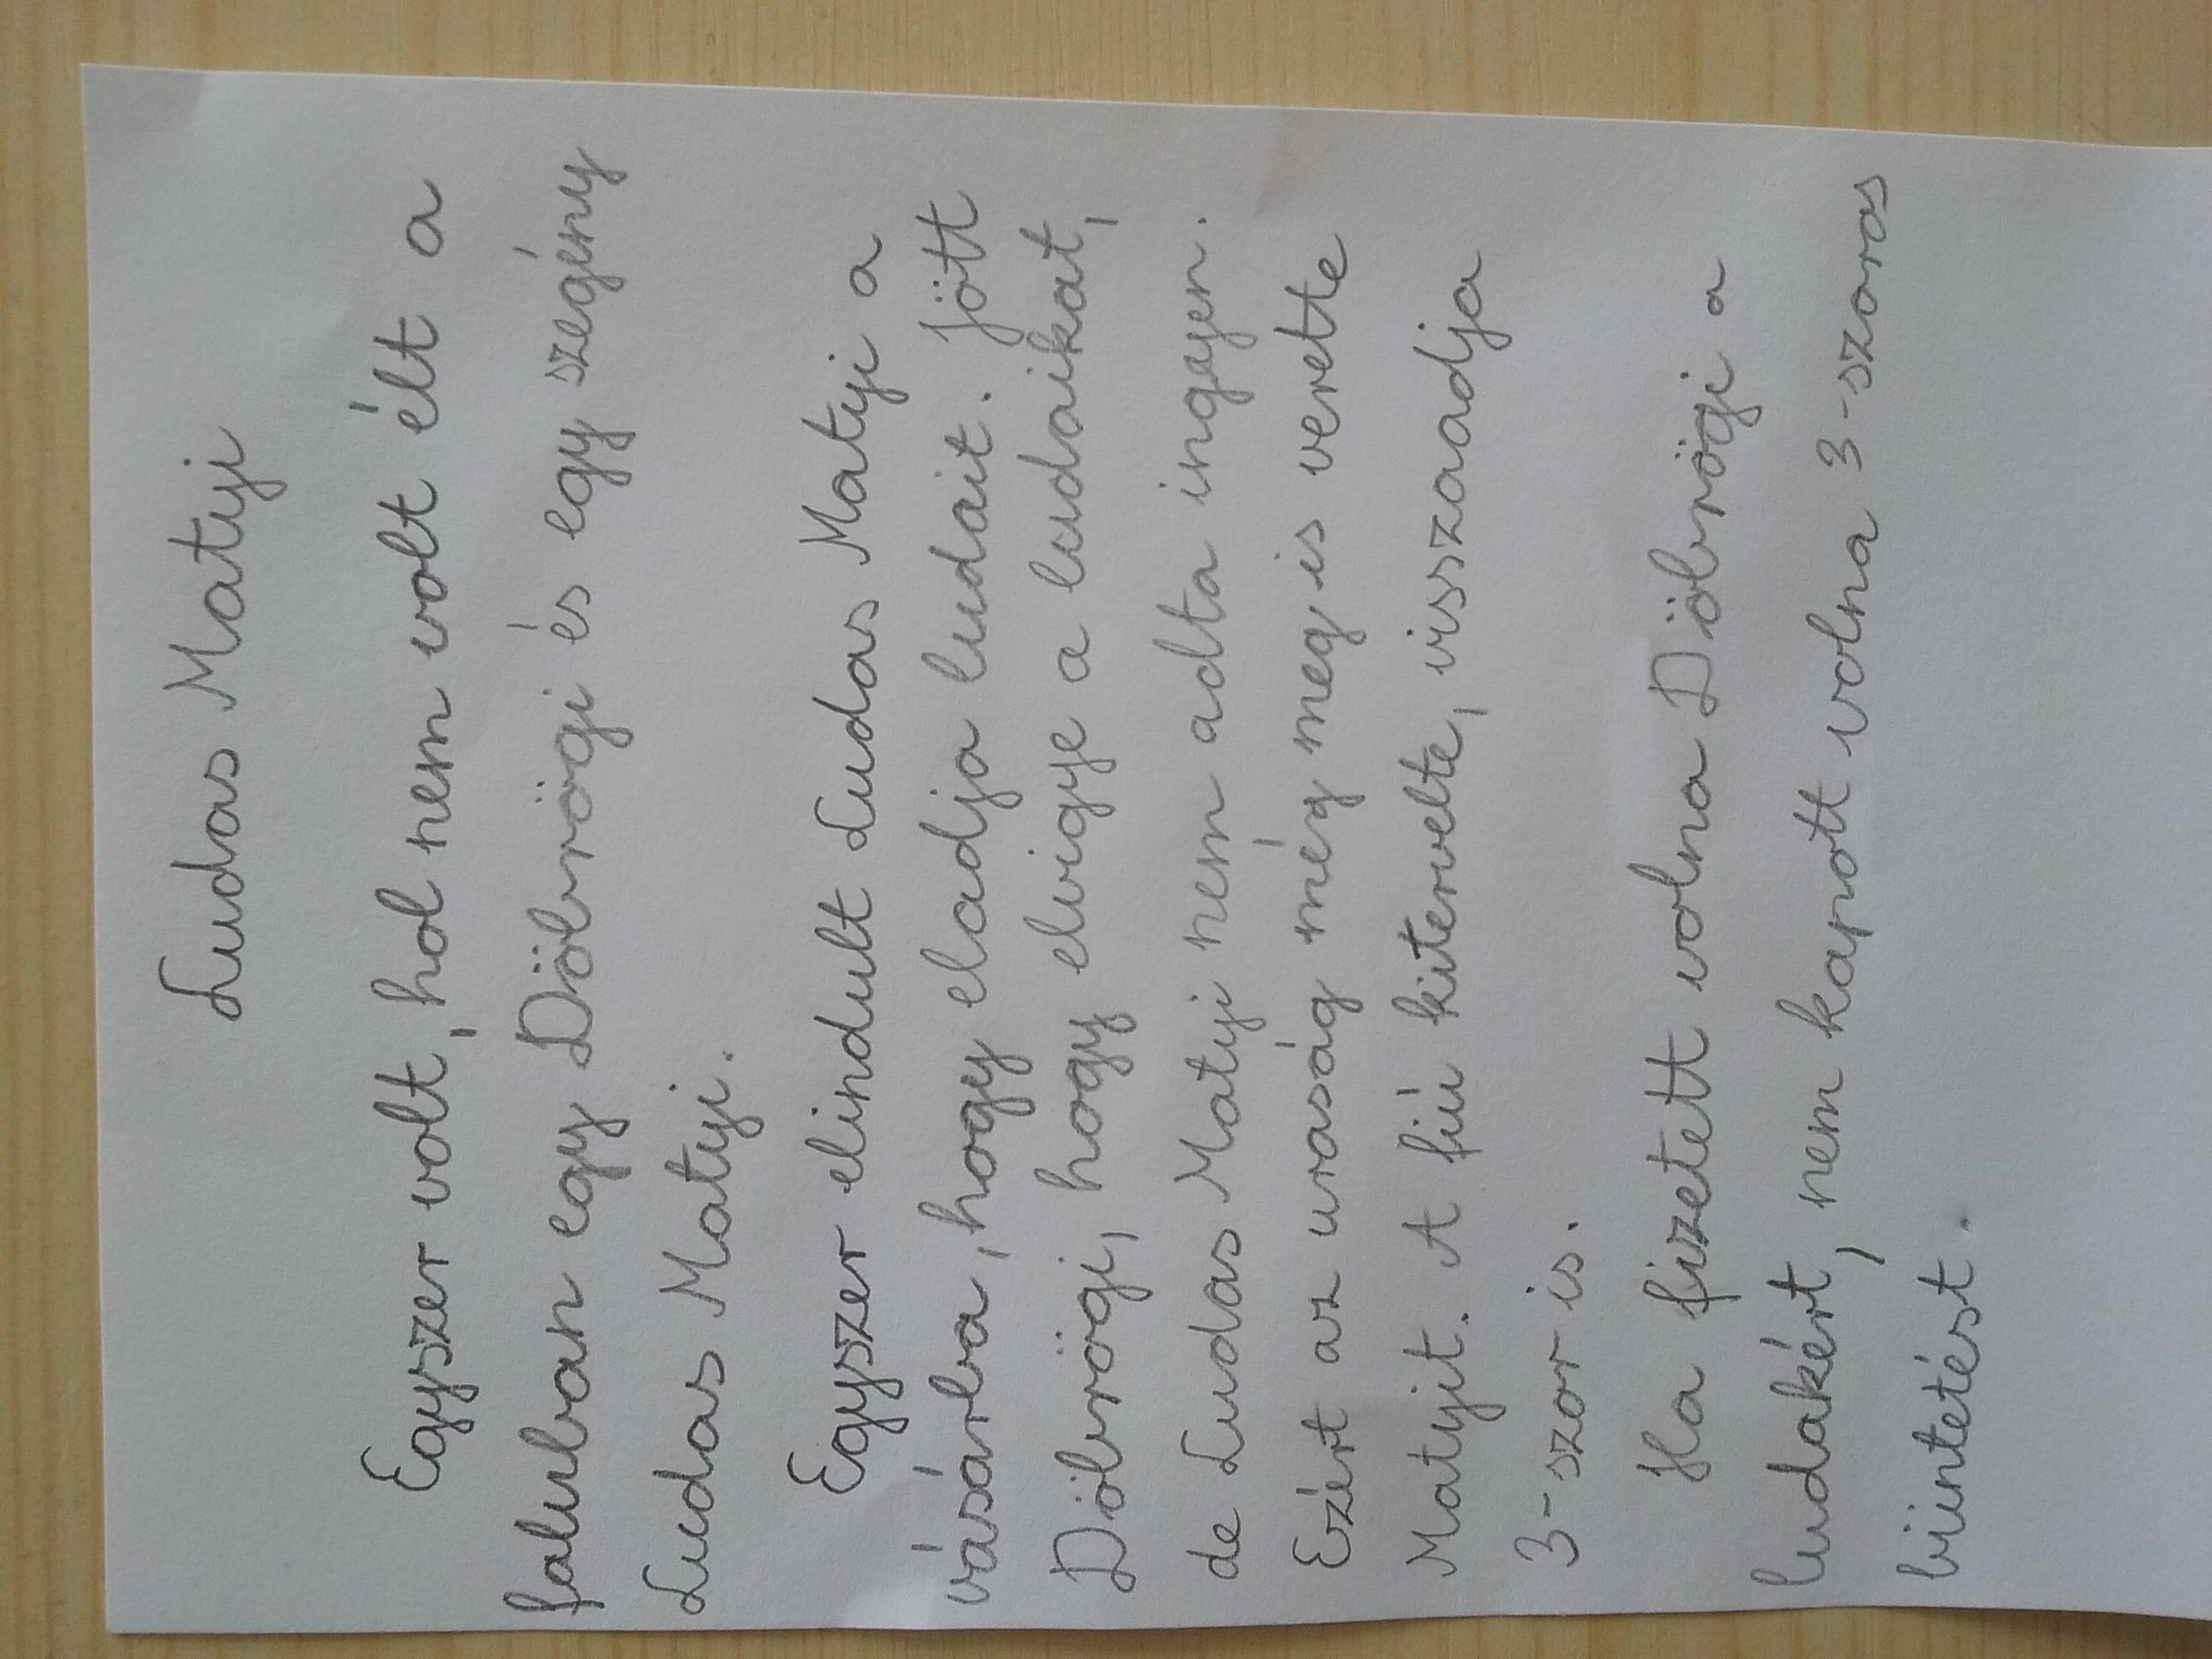 Ludas Matyi
Egyszer volt, hol nem volt élt a
faluban egy Döbrögi és egy szegény
Ludas Matyi.
Egyszer elindult Ludas Matyi a
vásárba, hogy eladja ludait. Jött
Döbrögi, hogy elvigye a ludaikat,
de Ludas Matyi nem adta ingayen.
Ezért az uraság még meg is verette
Matyit. A fiú kitervelte, visszaadja
3-szor is.
Ha fizetett volna Döbrögi a
ludakért, nem kapott volna 3-szoros
büntetést.